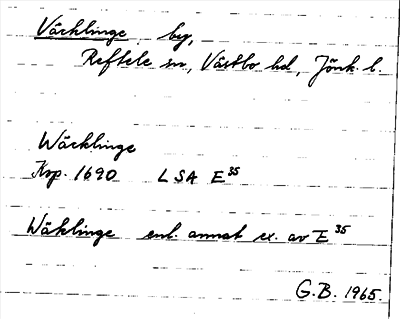 Väcklinge by,
Reftele sn, Västbo hd, Jönk. l.
Wäcklinge
Kop. 1690 LSA E35
Wäklinge enl. annat ex. av E35
G.B. 1965.